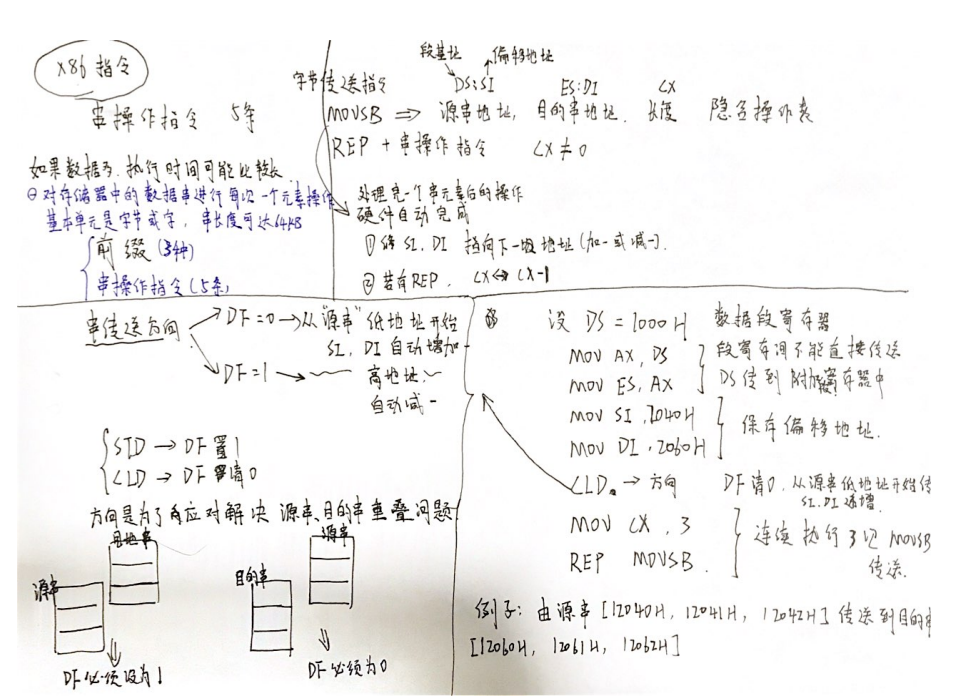 x86 指令
串操作指令 5条
如果数据多，执行时间可能比较长
对存储器中的数据串进行每次一个元素操作
基本单元是字节或字，串长度可达64KB
前缀（3种）
串操作指令（5条）
段基址 偏移地址
字节传送指令 DS:SI ES:DI CX
MOVSB ⇒ 源串地址，目的串地址，长度 隐含操作表
REP + 串操作指令 CX≠0
处理完一个串元素后的操作
硬件自动完成
① 修 SI、DI 指向下一级地址（加一或减一）.
② 若有REP， CX⇔CX-1
串传送方向
DF=0 → 从"源串"低地址开始
SI、DI 自动增加一
DF=1 → 高地址
自动减一
STD → DF 置1
CLD → DF 清0
方向是为了应对解决 源串、目的串重叠问题
目地串
源串
DF必须设为1
源串
目的串
DF必须为0
设 DS = 1000H 数据段寄存器
MOV AX, DS 段寄存间不能直接传送
MOV ES, AX DS传到附加寄存器中
MOV SI, 2040H
MOV DI, 2060H 保存偏移地址.
CLD → 方向 DF清0，从源串低地址开始传
SI、DI递增
MOV CX, 3
REP MOVSB. 连续执行3次MOVSB
传送.
例子：由源串[12040H, 12041H, 12042H]传送到目的串
[12060H, 12061H, 12062H]